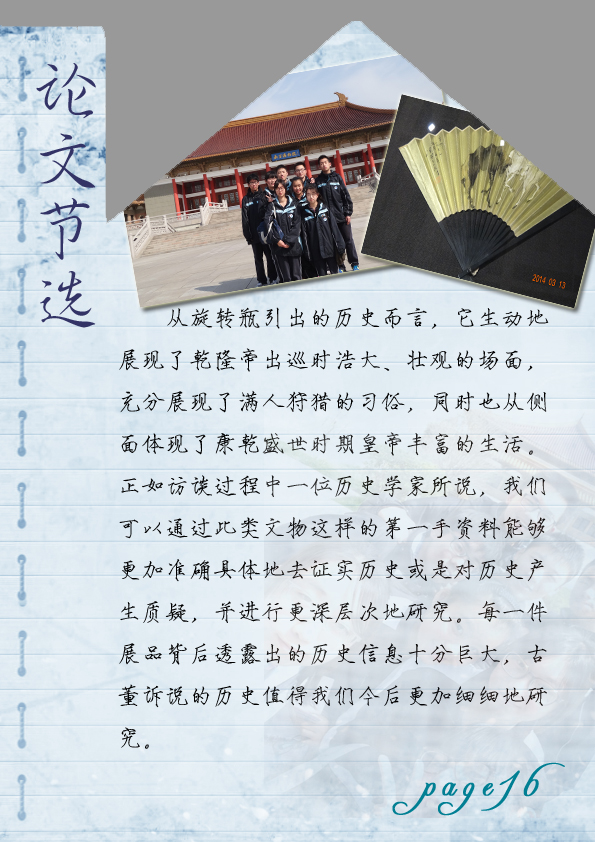 论文节选
2014 03 13
从旋转瓶引出的历史而言，它生动地
展现了乾隆帝出巡时浩大、壮观的场面，
充分展现了满人狩猎的习俗，同时也从侧
面体现了康乾盛世时期皇帝丰富的生活。
正如访谈过程中一位历史学家所说，我们
可以通过此类文物这样的第一手资料能够
更加准确具体地去证实历史或是对历史产
生质疑，并进行更深层次地研究。每一件
展品背后透露出的历史信息十分巨大，古
董诉说的历史值得我们今后更加细细地研
究。
page16